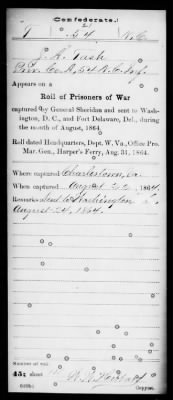 Confederate.
T 54 N.C.
J. H. Tash
Priv. Co. D, 54 N.C. Inf.
Appears on a
Roll of Prisoners of War
captured by General Sheridan and sent to Wash-
ington, D. C., and Fort Delaware, Del., during
the month of August, 1864.
Roll dated Headquarters, Dept. W. Va., Office Pro.
Mar. Gen., Harper's Ferry, Aug. 31, 1864.
Where captured Charlestown, Va.
When captured August 22, 1864.
Remarks: Sent to Washington
August 24, 1864.
Number of roll:
45; sheet
Copyist.